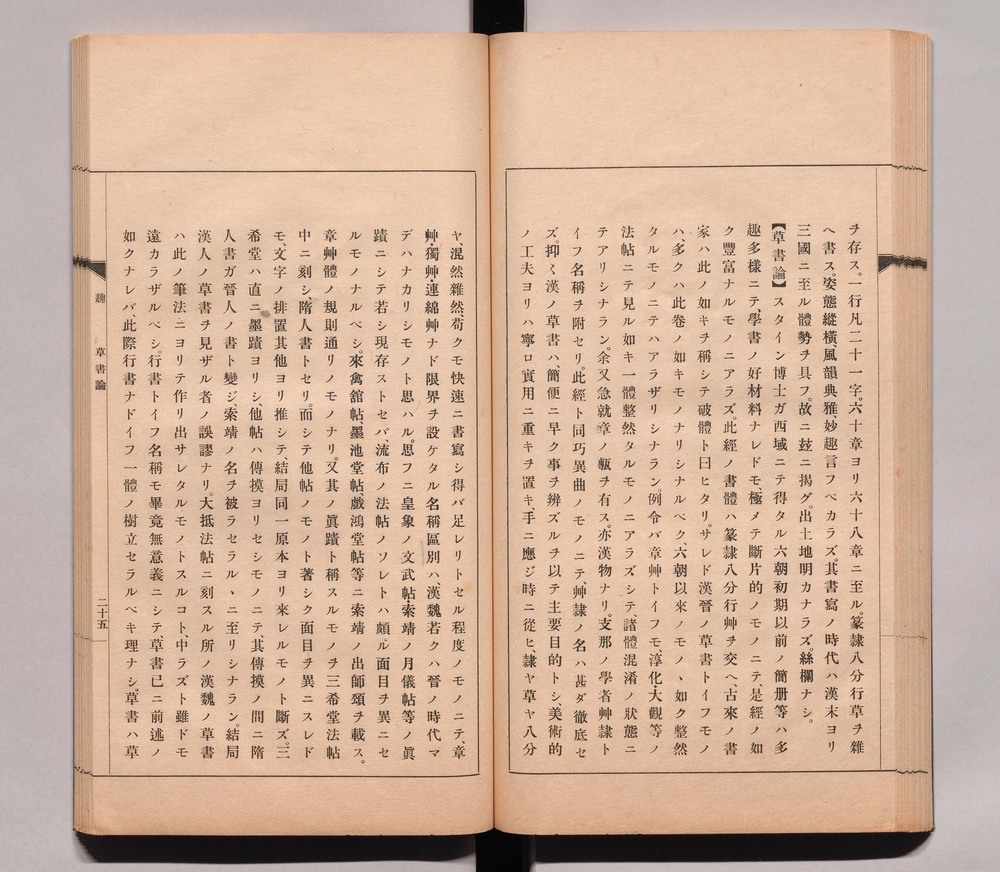 ヲ存ス。一行凡二十一字。六十章ヨリ六十八章ニ至ル。篆隷八分行草ヲ雜
ヘ書ス。姿態縱橫風韻典雅、妙趣言フベカラズ其書寫ノ時代ハ漢末ヨリ
三國ニ至ル體勢ヲ具フ。故ニ玆ニ揭グ。出土地明カナラズ。絲欄ナシ。
【草書論】スタイン博士ガ西域ニテ得タル六朝初期以前ノ簡册等ハ多
趣多樣ニテ、學書ノ好材料ナレドモ、極メテ斷片的ノモノニテ、是經ノ如
ク豐富ナルモノニアラズ。此經ノ書體ハ篆隷八分行艸ヲ交ヘ、古來ノ書
家ハ此ノ如キヲ稱シテ破體ト曰ヒタリ。サレド漢晉ノ草書トイフモノ
ハ、多クハ此卷ノ如キモノナリシナルベク、六朝以來ノモノヽ如ク整然
タルモノニテハアラザリシナラン。例令バ章艸トイフモ、淳化大觀等ノ
法帖ニテ見ル如キ一體整然タルモノニアラズシテ、諸體混淆ノ狀態ニ
テアリシナラン。余又急就章ノ甎ヲ有ス。亦漢物ナリ。支那ノ學者艸隷ト
イフ名稱ヲ附セリ。此經ト同巧異曲ノモノニテ艸隷ノ名ハ甚ダ徹底セ
ズ。抑〻漢ノ草書ハ簡便ニ早ク事ヲ辨ズルヲ以テ主要目的トシ、美術的
ノ工夫ヨリハ寧ロ實用ニ重キヲ置キ、手ニ應ジ時ニ從ヒ、隷ヤ草ヤ八分
ヤ、混然雜然、苟クモ快速ニ書寫シ得バ足レリトセル程度ノモノニテ、章
艸、獨艸連綿艸ナド限界ヲ設ケタル名稱區別ハ、漢魏若クハ晉ノ時代マ
デハナカリシモノト思ハル。思フニ皇象ノ文武帖、索靖ノ月儀帖等ノ眞
蹟ニシテ若シ現存ストセバ、流布ノ法帖ノソレトハ頗ル面目ヲ異ニセ
ルモノナルベシ。來禽舘帖墨池堂帖、戲鴻堂帖等ニ索靖ノ出師頌ヲ載ス。
章艸體ノ規則通リノモノナリ。又其ノ眞蹟ト稱スルモノヲ三希堂法帖
中ニ刻シ、隋人書トセリ。而シテ他帖ノモノト著シク面目ヲ異ニスレド
モ、文字ノ排置其他ヨリ推シテ、結局同一原本ヨリ來レルモノト斷ズ。三
希堂ハ直ニ墨蹟ヨリシ、他帖ハ傳摸ヨリセシモノニテ、其傳摸ノ間ニ隋
人書ガ晉人ノ書ト變ジ、索靖ノ名ヲ被ラセラルヽニ至リシナラン。結局
漢人ノ草書ヲ見ザル者ノ誤謬ナリ。大抵法帖ニ刻スル所ノ漢魏ノ草書
ハ此ノ筆法ニヨリテ作リ出サレタルモノトスルコト、中ラズト雖ドモ
遠カラザルベシ。行書トイフ名稱モ畢竟無意義ニシテ、草書已ニ前述ノ
如クナレバ、此際行書ナドイフ一體ノ樹立セラルベキ理ナシ。草書ハ草
魏　草書論
二十五